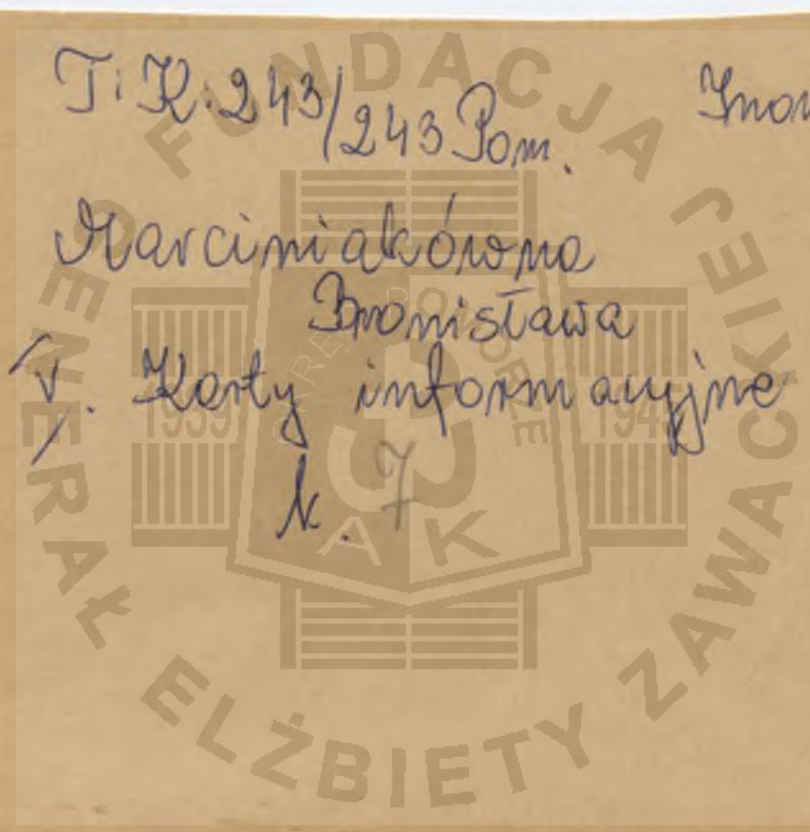 T: K: 243/243 Pom.
Marciniakówna
Bronisława
V. Karty informacyjne
k. 7
FUNDACJA GENERAŁ ELŻBIETY ZAWACKIEJ
OKRĘG POMORZE
1939 1945
AK